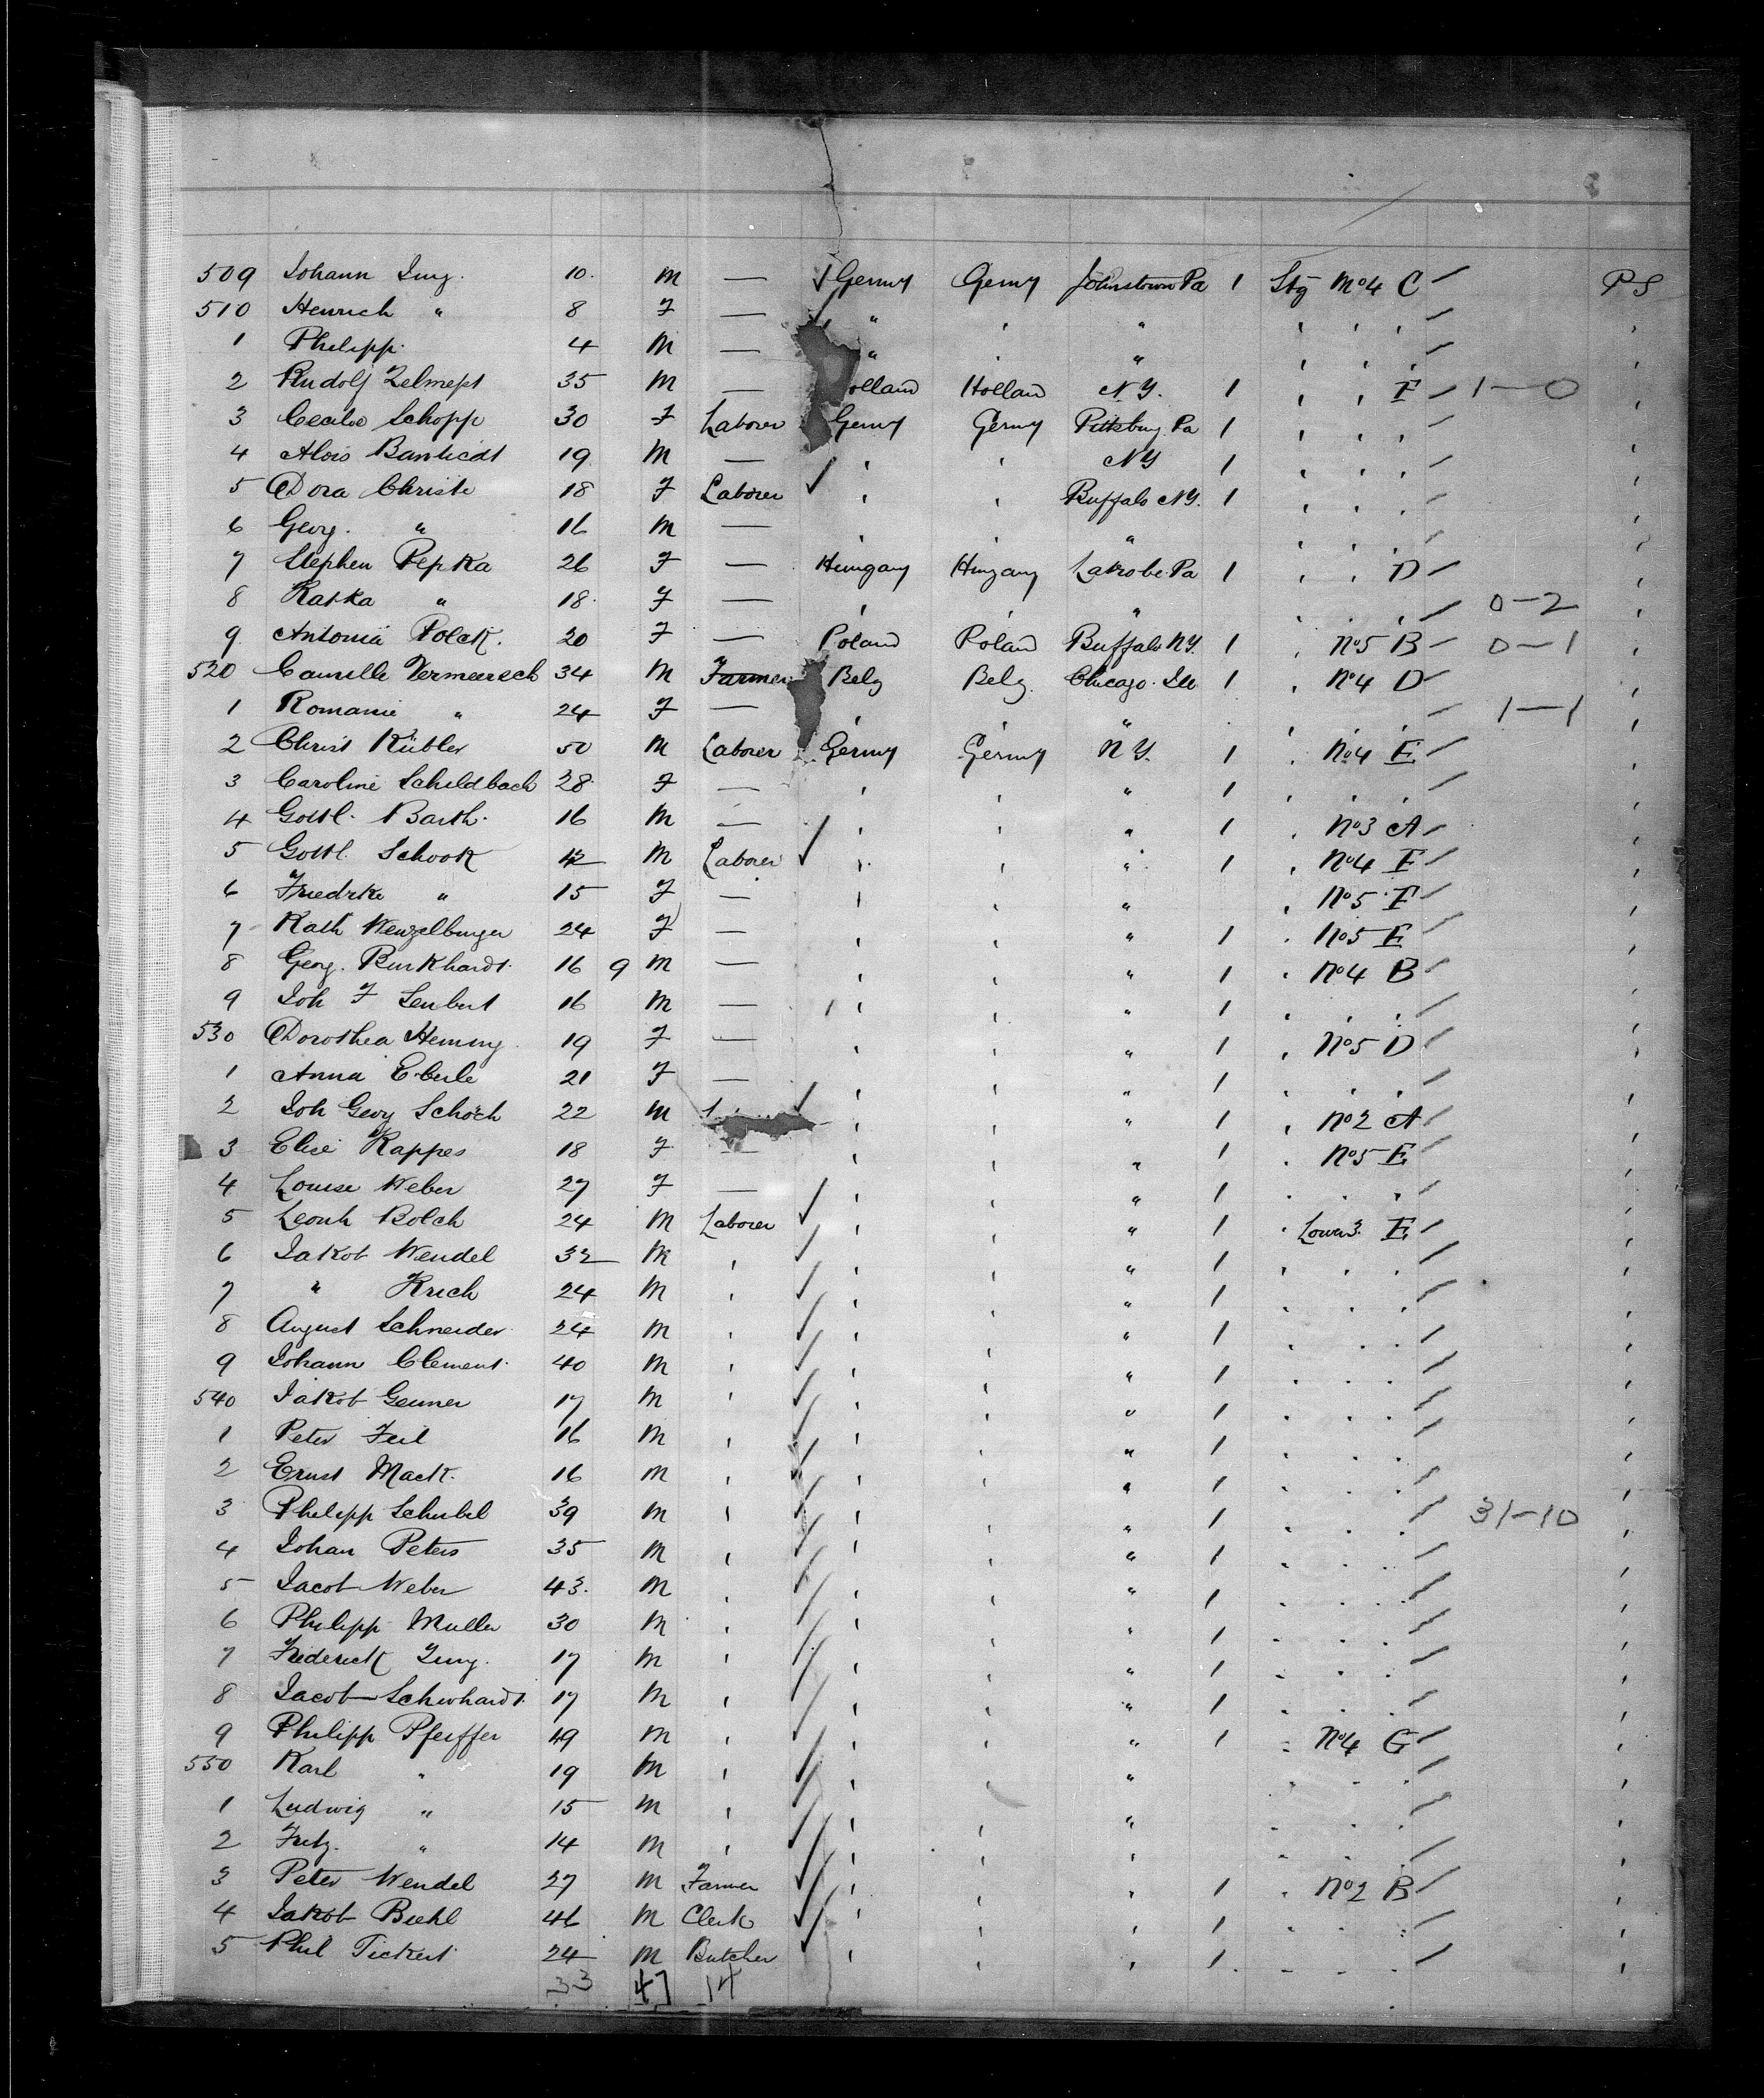 509 Johann Jung. 10. M — Germy Germy Johnstown Pa 1 Stg No4 C PS
510 Henrich " 8 F — " ' " ' ' '
1 Philipp. 4 M — " ' " ' ' '
2 Rudolf 35 M — olland Holland N.Y. 1 ' ' F 1—0
3 Cecilie Schopp 30 F Laborer Germy Germy Pittsburg Pa 1 ' ' '
4 Alois 19 M — ' ' NY 1 ' ' '
5 Dora Christe 18 F Laborer ' ' Buffalo NY. 1 ' ' '
6 Georg. " 16 M — ' ' " ' ' '
7 Stephen Pepka 26 F — Hungary Hungary Latrobe Pa 1 ' ' D
8 Katka " 18. F — ' ' " ' ' ' 0—2
9 Antonia Polck. 20 F — Poland Poland Buffalo N.Y. 1 ' No5 B 0—1
520 Camille Vermeersch 34 M Farmer Belg Belg. Chicago. Ill 1 ' No4 D
1 Romanie " 24 F — ' ' " ' ' ' 1—1
2 Christ Kübler 50 M Laborer Germy Germy N.Y. 1 ' No4 E
3 Caroline Schildbach 28. F — ' ' " 1 ' ' '
4 Gottl. Barth. 16 M — ' ' " 1 ' No3 A
5 Gottl. Schook 42 M Laborer ' ' " 1 ' No4 F
6 Friedrke " 15 F — ' ' " ' No5 F
7 Kath Wenzelburger 24 F — ' ' " 1 ' No5 E
8 Georg. Burkhardt. 16 9 M — ' ' " 1 ' No4 B
9 Joh F Seubert 16 M — ' ' " 1 ' ' '
530 Dorothea Hennig 19 F — ' ' " 1 ' No5 D
1 Anna Eberle 21 F — ' ' " 1 ' ' '
2 Joh Georg Schoch 22 M ' ' " 1 ' No2 A
3 Elise Kappes 18 F — ' ' " 1 ' No5 E
4 Louise Weber 27 F — ' ' " 1 ' ' '
5 Leonh Bolch 24 M Laborer ' ' " 1 ' Lower3. E
6 Jakob Wendel 32 M ' ' ' " 1 ' ' '
7 " Krich 24 M ' ' ' " 1 ' ' '
8 August Schneider 24 M ' ' ' " 1 ' ' '
9 Johann Clement. 40 M ' ' ' " 1 ' ' '
540 Jakob Genner 17 M ' ' ' " 1 ' ' '
1 Peter Feil 16 M ' ' ' " 1 ' ' '
2 Ernst Mack. 16 M ' ' ' " 1 ' ' '
3 Philipp Scheibel 39 M ' ' ' " 1 ' ' ' 31—10
4 Johan Peters 35 M ' ' ' " 1 ' ' '
5 Jacob Weber 43. M ' ' ' " 1 ' ' '
6 Philipp Muller 30 M ' ' ' " 1 ' ' '
7 Frederick Jung. 17 M ' ' ' " 1 ' ' '
8 Jacob 17 M ' ' ' " 1 ' ' '
9 Philipp Pfeiffer 49 M ' ' ' " 1 ' No4 G
550 Karl " 19 M ' ' ' " ' ' '
1 Ludwig " 15 M ' ' ' " ' ' '
2 Fritz. " 14 M ' ' ' ' ' ' '
3 Peter Wendel 27 M Farmer ' ' ' 1 ' No2 B
4 Jakob Biehl 46 M Clerk ' ' ' 1 ' ' '
5 Phil Tickert 24 M Butcher ' ' ' 1 ' ' '
33 47 14